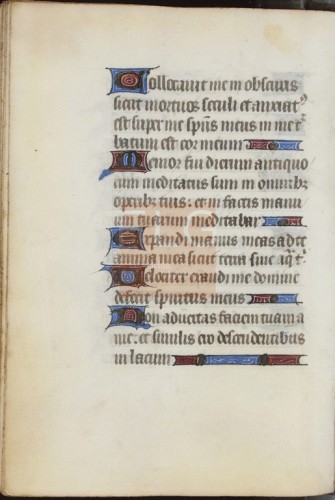 Collocavit me in obscuris
sicut mortuos seculi et anxiatꝰ
est super me spūs meus in me tᷓ
batum est cor meum
Memor fui dierum antiquo
rum meditatus sum in omnibꝫ
operibꝫ tuis: et in factis manu
um tuarum meditabar
Expandi manus meas ad te
anima mea sicut terra sine aq̄ t̄
Velociter exaudi me domine
defecit spiritus meus
Non advertas faciem tuam a
me: et similis ero descendentibus
in lacum